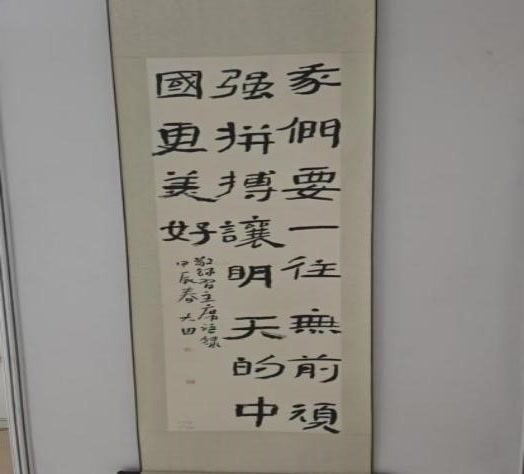 我們要一往無前頑
强拼搏讓明天的中
國更美好
敬録習主席語録
甲辰春 大田